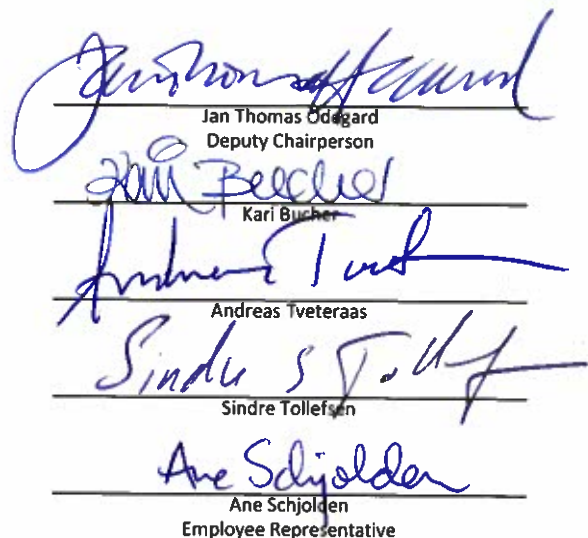 Jan Thomas Odegard
Deputy Chairperson
Kari Bucher
Kari Bucher
Andreas Tveteraas
Sindre S Tollef
Sindre Tollefsen
Ane Schjolden
Ane Schjolden
Employee Representative